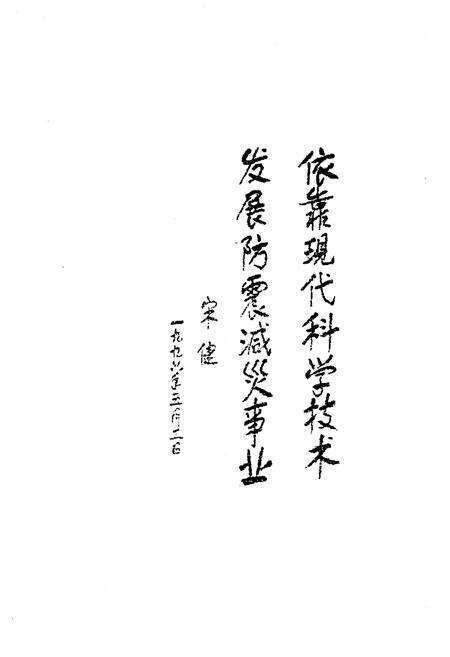 依靠现代科学技术
发展防震减灾事业
宋健
一九九六年五月二日